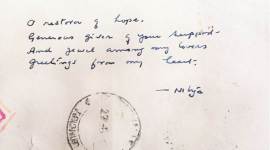 A restorer of hope.
Generous giver of your support
And jewel among my lovers
Greetings from my heart.
— Nitya